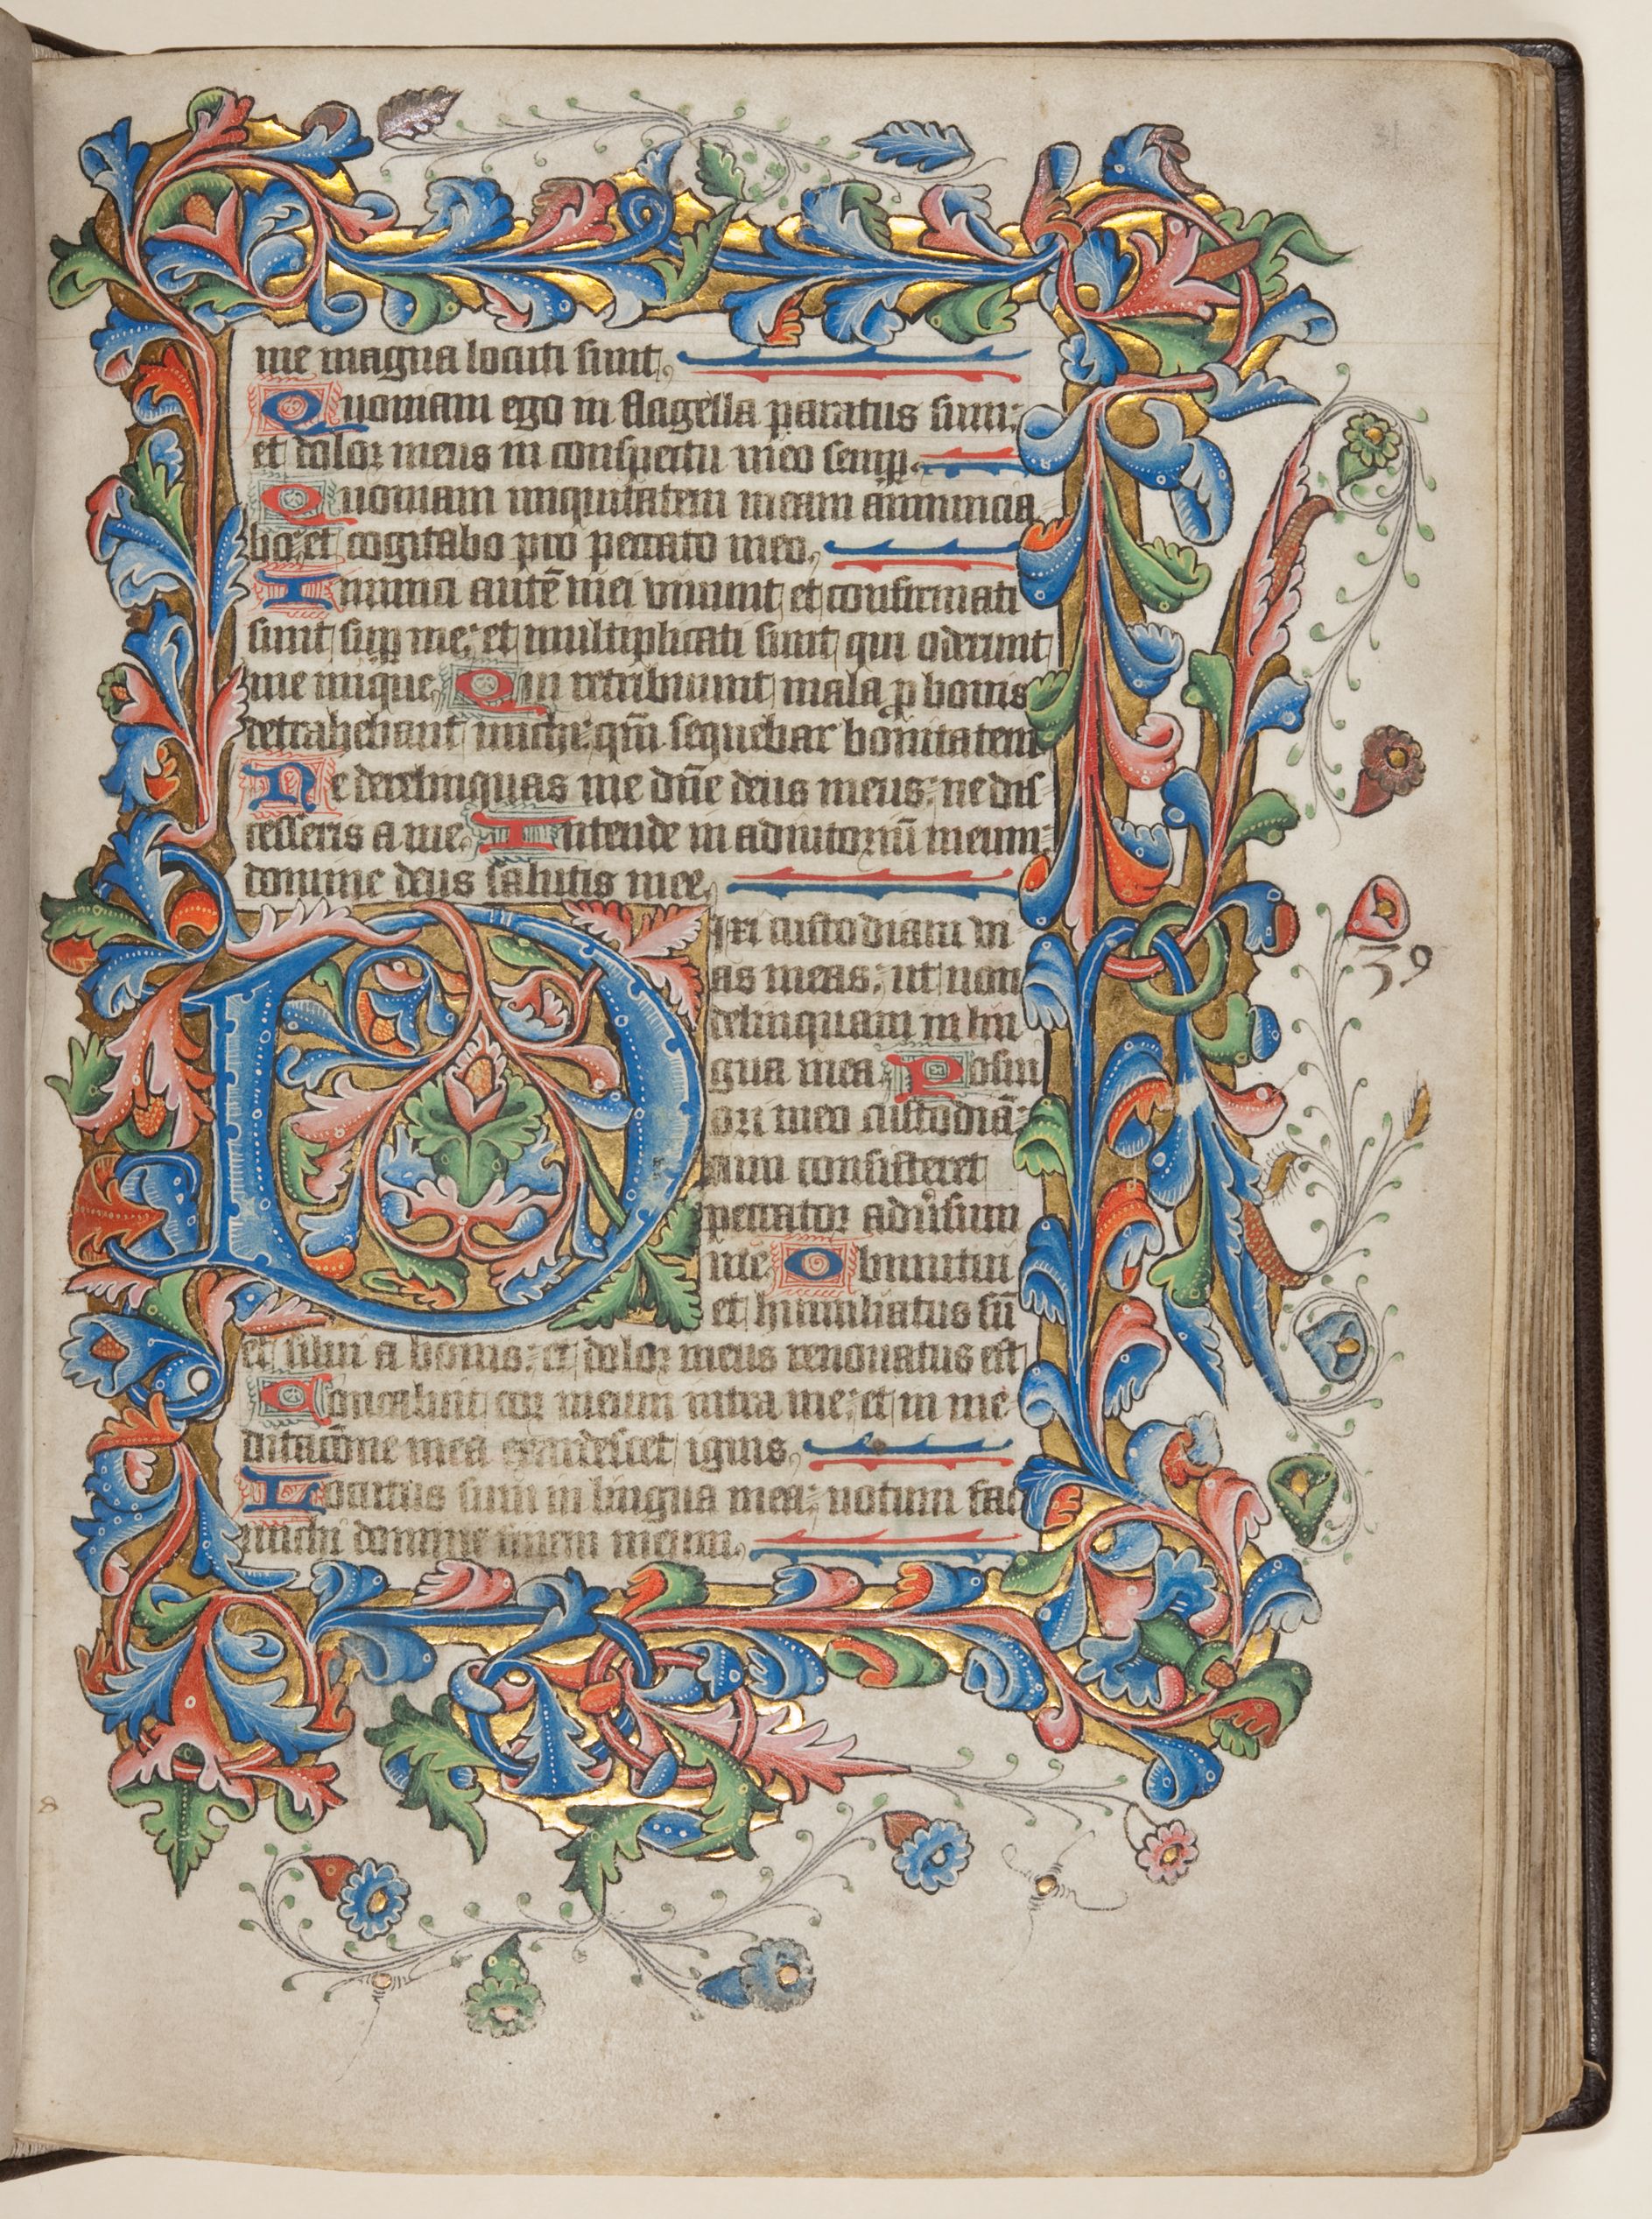 31
me magna locuti sunt,
Quoniam ego in flagella paratus sum:
et dolor meus in conspectu meo semp.
Quoniam iniquitatem meam annuncia
bo: et cogitabo pro peccato meo,
Inimici autē mei viuunt et confirmati
sunt sup me: et multiplicati sunt qui oderunt
me inique, Qui retribuunt mala p bonis
detrahebant michi: qm̄ sequebar bonitatem
Ne derelinquas me dn̄e deus meus: ne dis
cesseris a me. Intende in adiutoriū meum:
domine deus salutis mee,
Dixi custodiam vi
as meas: ut non
delinquam in lin
39
gua mea. Posui
ori meo custodiā:
cum consisteret
peccator adūsum
me Obmutui
et humiliatus sū
et silui a bonis: et dolor meus renouatus est
Concaluit cor meum intra me: et in me
ditacōne mea exardescet ignis,
Locutus sum in lingua mea: notum fac
michi domine finem meum,